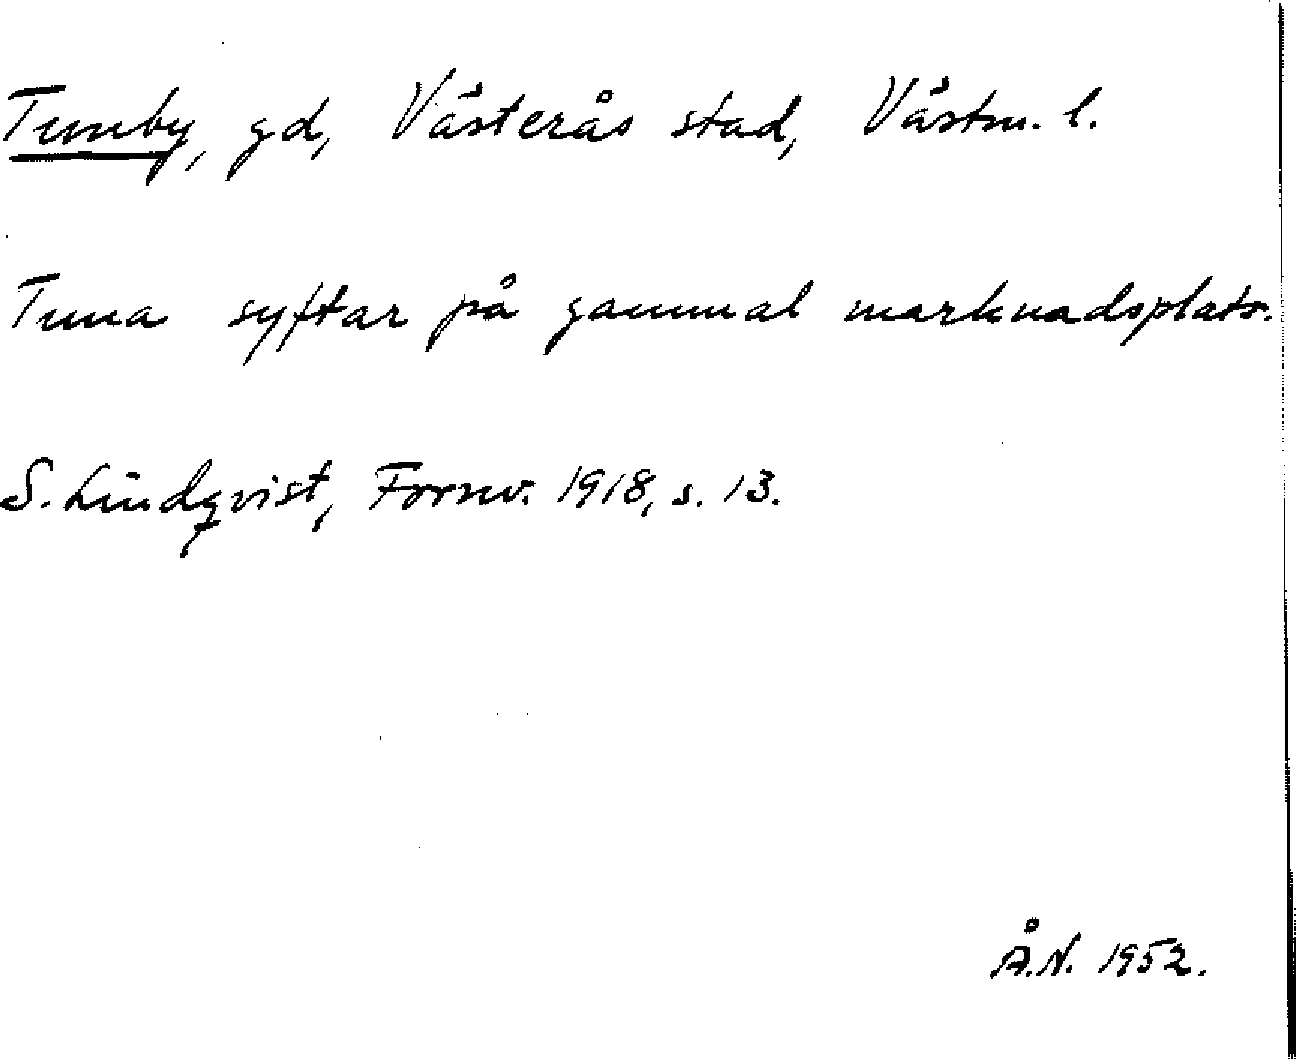 Tunby, gd, Västerås stad, Västm. l.
Tuna syftar på gammal marknadsplats.
S. Lindqvist, Fornv. 1918, s. 13.
Å.N. 1952.